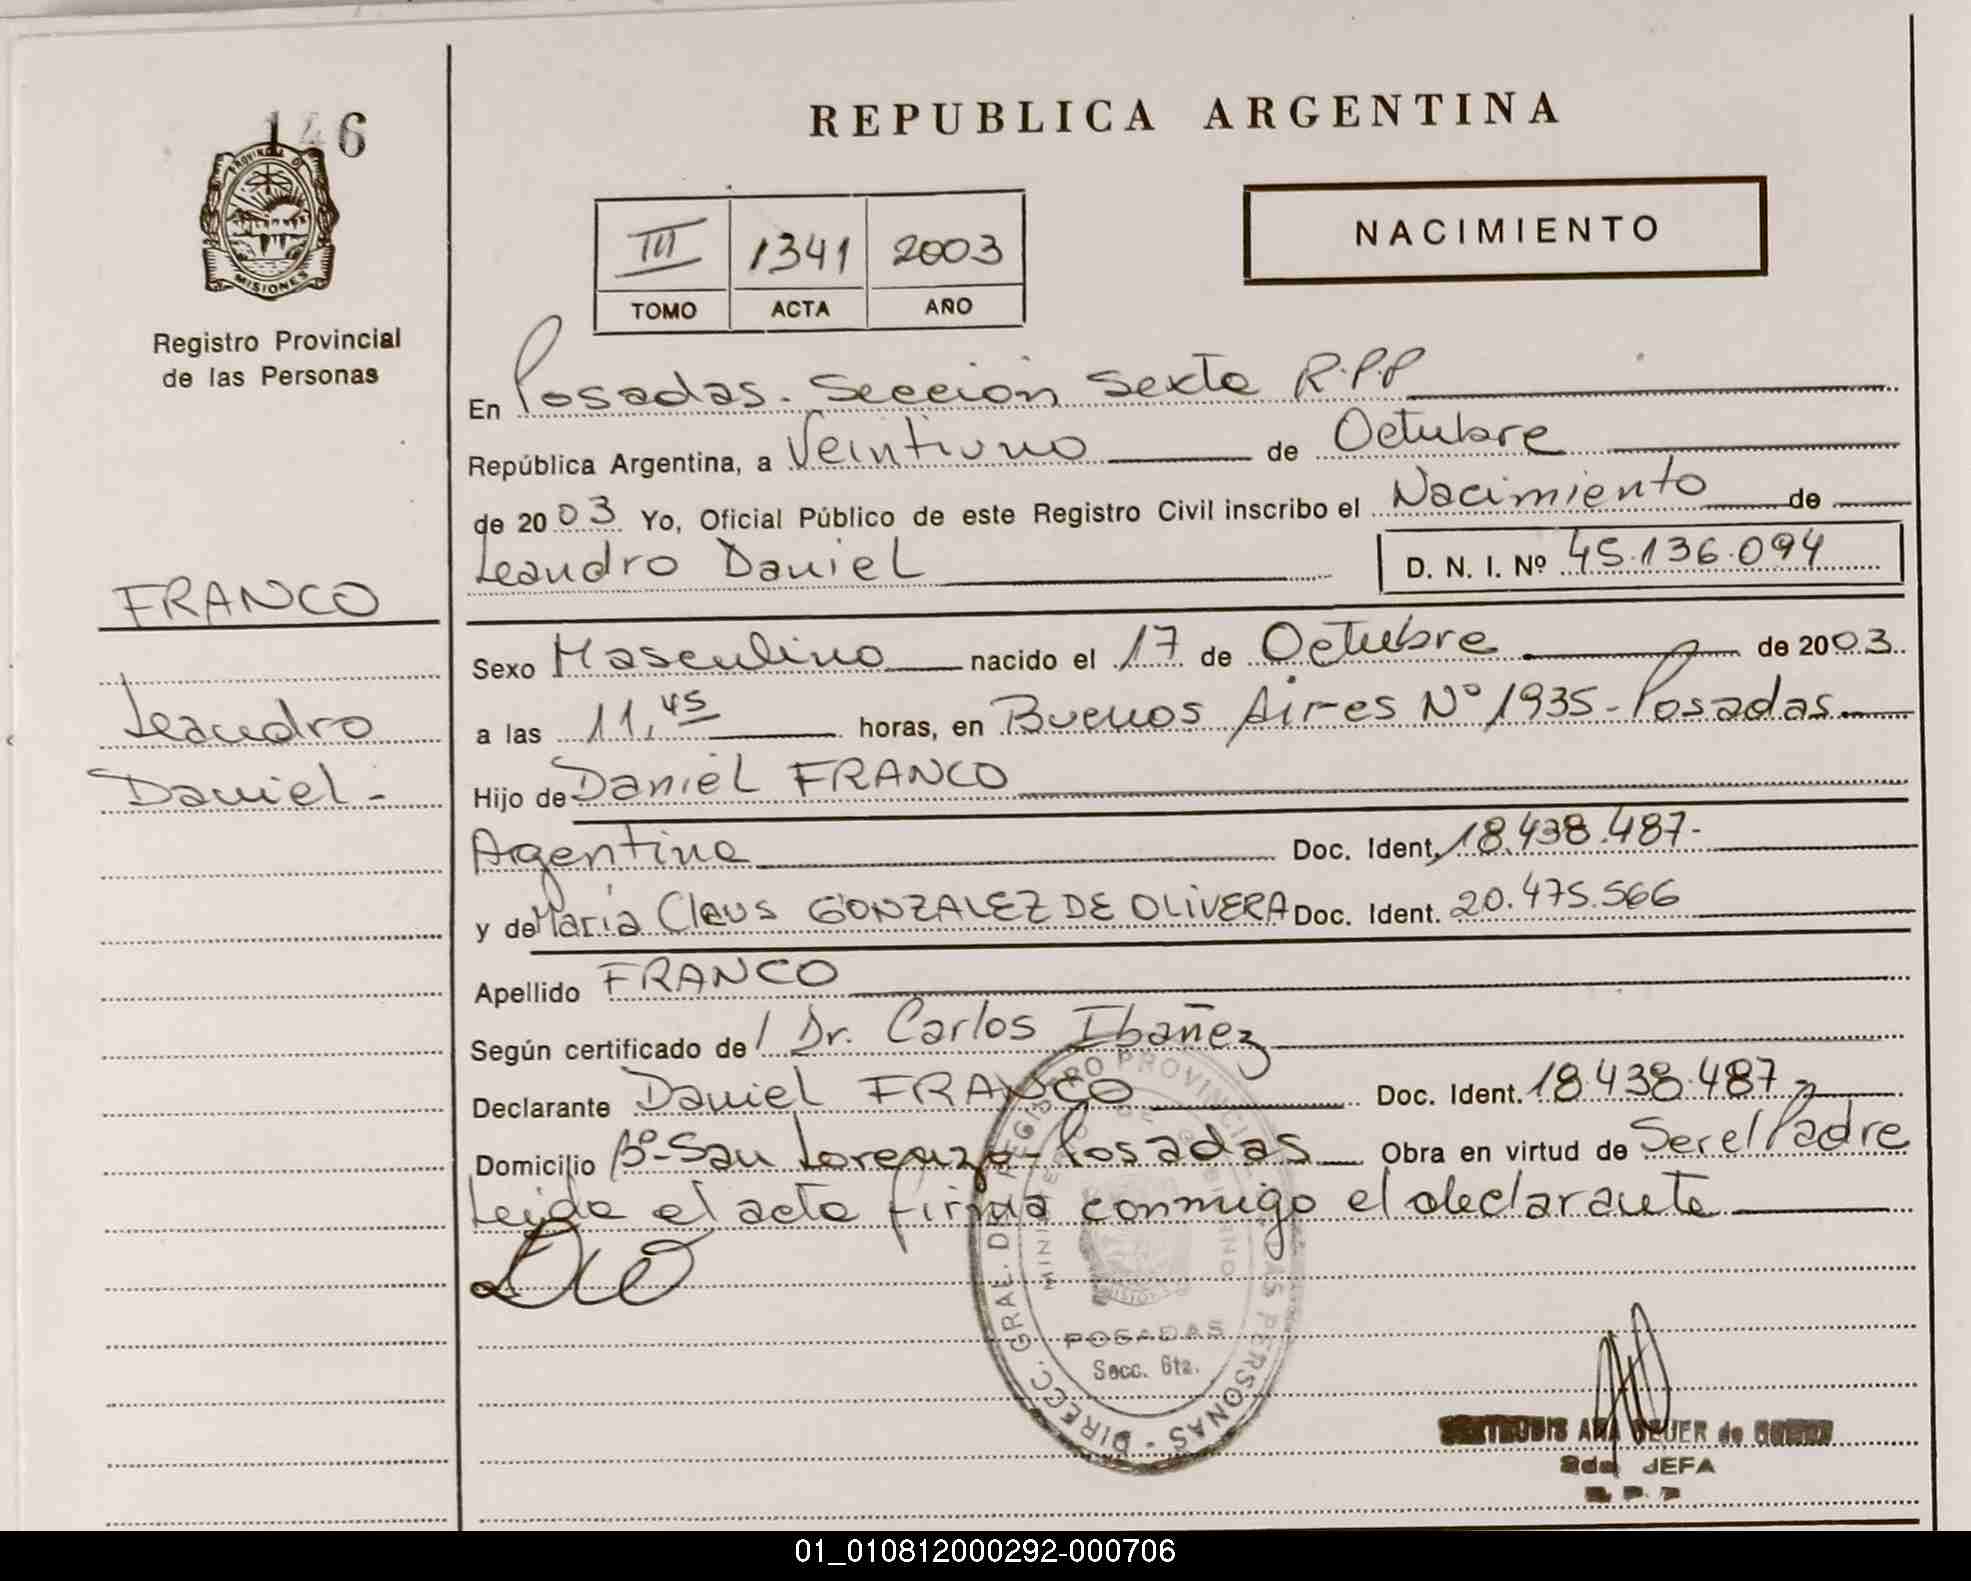 146
PROVINCIA DE
MISIONES
Registro Provincial
de las Personas
FRANCO
Leandro
Daniel-
REPUBLICA ARGENTINA
III 1341 2003
TOMO ACTA AÑO
NACIMIENTO
En Posadas. Sección Sexta R.P.P
República Argentina, a Veintiuno de Octubre
de 2003 Yo, Oficial Público de este Registro Civil inscribo el Nacimiento de
Leandro Daniel D. N. I. Nº 45.136.094
Sexo Masculino nacido el 17 de Octubre de 2003
a las 11,45 horas, en Buenos Aires Nº 1935-Posadas
Hijo de Daniel FRANCO
Agentina Doc. Ident. 18.438.487-
y de María Claus GONZALEZ DE OLIVERA Doc. Ident. 20.475.566
Apellido FRANCO
Según certificado de Dr. Carlos Ibañez
Declarante Daniel FRANCO Doc. Ident. 18.438.487
Domicilio Bº-San Lorenzo-Posadas Obra en virtud de Ser el Padre
Leida el acta firma conmigo el declarante
DIRECC. GRAL. DEL REGISTRO PROVINCIAL DE LAS PERSONAS
MINISTERIO DE GOBIERNO
MISIONES
POSADAS
Secc. 6ta.
ANA de
2da JEFA
R. P. P
01_010812000292-000706